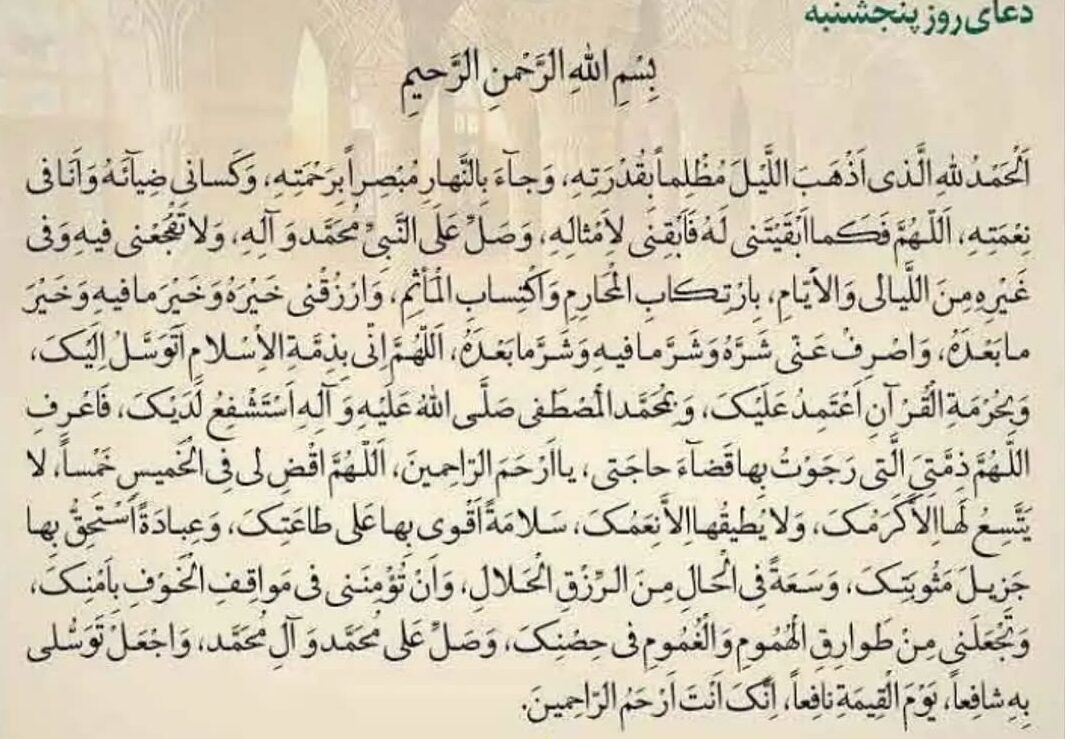 دعای روز پنجشنبه
بِسْمِ اللهِ الرَّحْمنِ الرَّحیمِ
اَلْحَمْدُ للهِ الَّذی اَذْهَبَ اللَّیْلَ مُظْلِماً بِقُدْرَتِهِ، وَجآءَ بِالنَّهارِ مُبْصِراً بِرَحْمَتِهِ، وَکَسانی ضِیآئَهُ وَاَنَا فی
نِعْمَتِهِ، اَللّهُمَّ فَکَما اَبْقَیْتَنی لَهُ فَاَبْقِنی لِاَمْثالِهِ، وَصَلِّ عَلَی النَّبِیِّ مُحَمَّد وَ آلِهِ، وَلا تَفْجَعْنی فیهِ وَفی
غَیْرِهِ مِنَ اللَّیالی وَالاَْیّامِ، بِارْتِکابِ الْمَحارِمِ وَاکْتِسابِ الْمَأثِمِ، وَارْزُقْنی خَیْرَهُ وَخَیْرَ ما فیهِ وَخَیْرَ
ما بَعْدَهُ، وَاصْرِفْ عَنّی شَرَّهُ وَشَرَّ ما فیهِ وَشَرَّ ما بَعْدَهُ، اَللّهُمَّ اِنّی بِذِمَّةِ الاِْسْلامِ اَتَوَسَّلُ اِلَیْکَ،
وَبِحُرْمَةِ الْقُرْآنِ اَعْتَمِدُ عَلَیْکَ، وَبِمُحَمَّد الْمُصْطَفی صَلَّی اللهُ عَلَیْهِ وَ آلِهِ اَسْتَشْفِعُ لَدَیْکَ، فَاعْرِفِ
اللّهُمَّ ذِمَّتِیَ الَّتی رَجَوْتُ بِها قَضآءَ حاجَتی، یا اَرْحَمَ الرّاحِمینَ، اَللّهُمَّ اقْضِ لی فِی الْخَمیسِ خَمْساً، لا
یَتَّسِعُ لَها اِلاَّ کَرَمُکَ، وَلا یُطیقُها اِلاَّ نِعَمُکَ، سَلامَةً اَقْوی بِها عَلی طاعَتِکَ، وَعِبادَةً اَسْتَحِقُّ بِها
جَزیلَ مَثُوبَتِکَ، وَسَعَةً فِی الْحالِ مِنَ الرِّزْقِ الْحَلالِ، وَاَنْ تُؤْمِنَنی فی مَواقِفِ الْخَوْفِ بِاَمْنِکَ،
وَتَجْعَلَنی مِنْ طَوارِقِ الْهُمُومِ وَالْغُمُومِ فی حِصْنِکَ، وَصَلِّ عَلی مُحَمَّد وَ آلِ مُحَمَّد، وَاجْعَلْ تَوَسُّلی
بِهِ شافِعاً، یَوْمَ الْقِیمَةِ نافِعاً، اِنَّکَ اَنْتَ اَرْحَمُ الرّاحِمینَ.